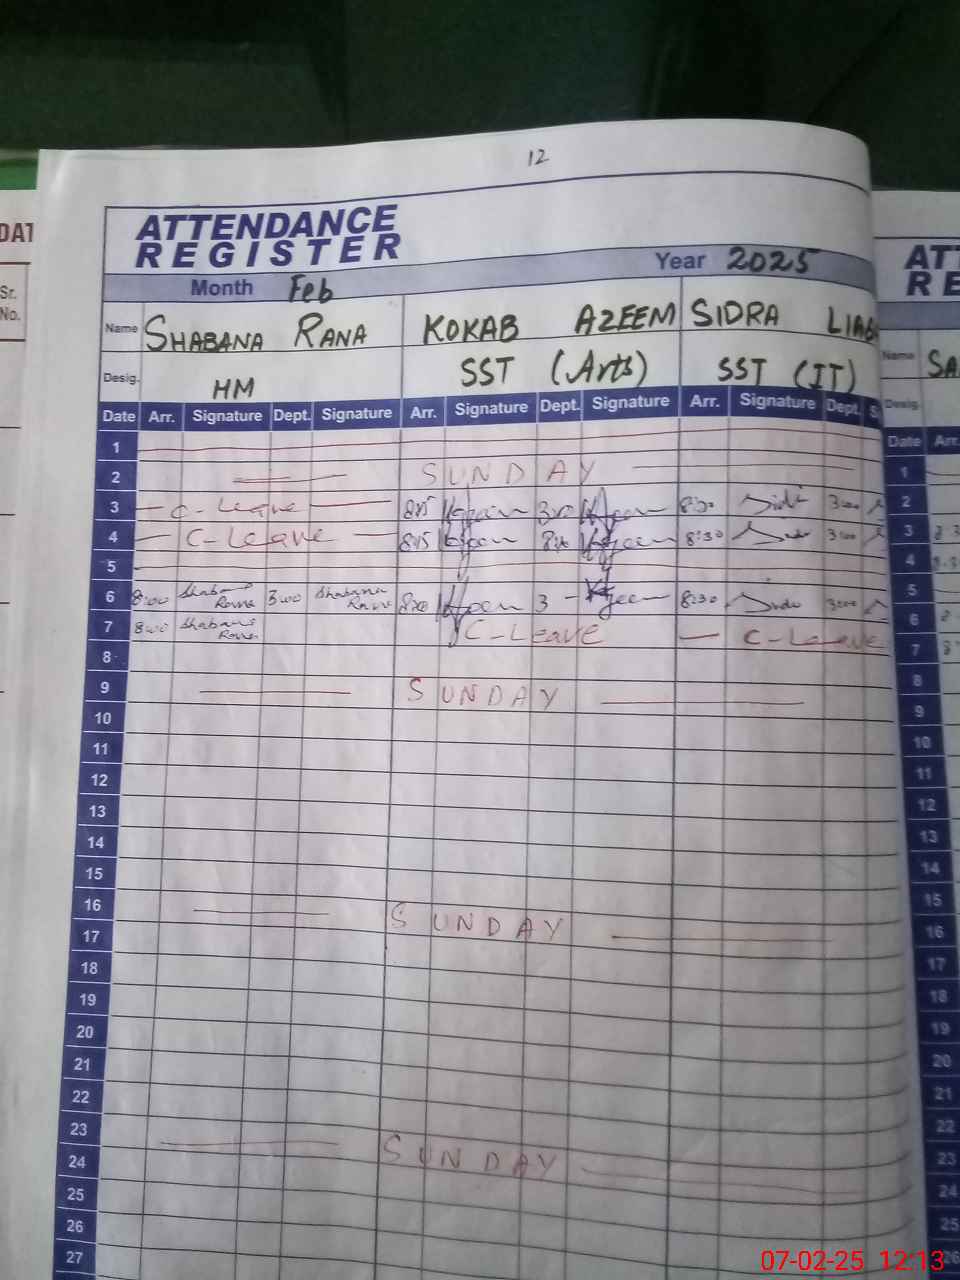 12
ATTENDANCE
REGISTER
Month Feb Year 2025
Name SHABANA RANA KOKAB AZEEM SIDRA
Desig. HM SST (Arts) SST (IT)
Date Arr. Signature Dept. Signature Arr. Signature Dept. Signature Arr. Signature Dept. S
1
2 SUNDAY
3 C-Leave 8:30
4 C-Leave 8:45 8:30 3:00
5
6 8:00 Shabana Rana 3:00 Shabana Rana 3 8:30 3:00
7 8:00 Shabana Rana C-Leave C-Leave
8
9 SUNDAY
10
11
12
13
14
15
16 SUNDAY
17
18
19
20
21
22
23 SUNDAY
24
25
26
27
DAT
Sr.
No.
ATT
RE
Name SA
Desig.
Date Arr.
1
2
3
4
5
6
7
8
9
10
11
12
13
14
15
16
17
18
19
20
21
22
23
24
25
07-02-25 12:13